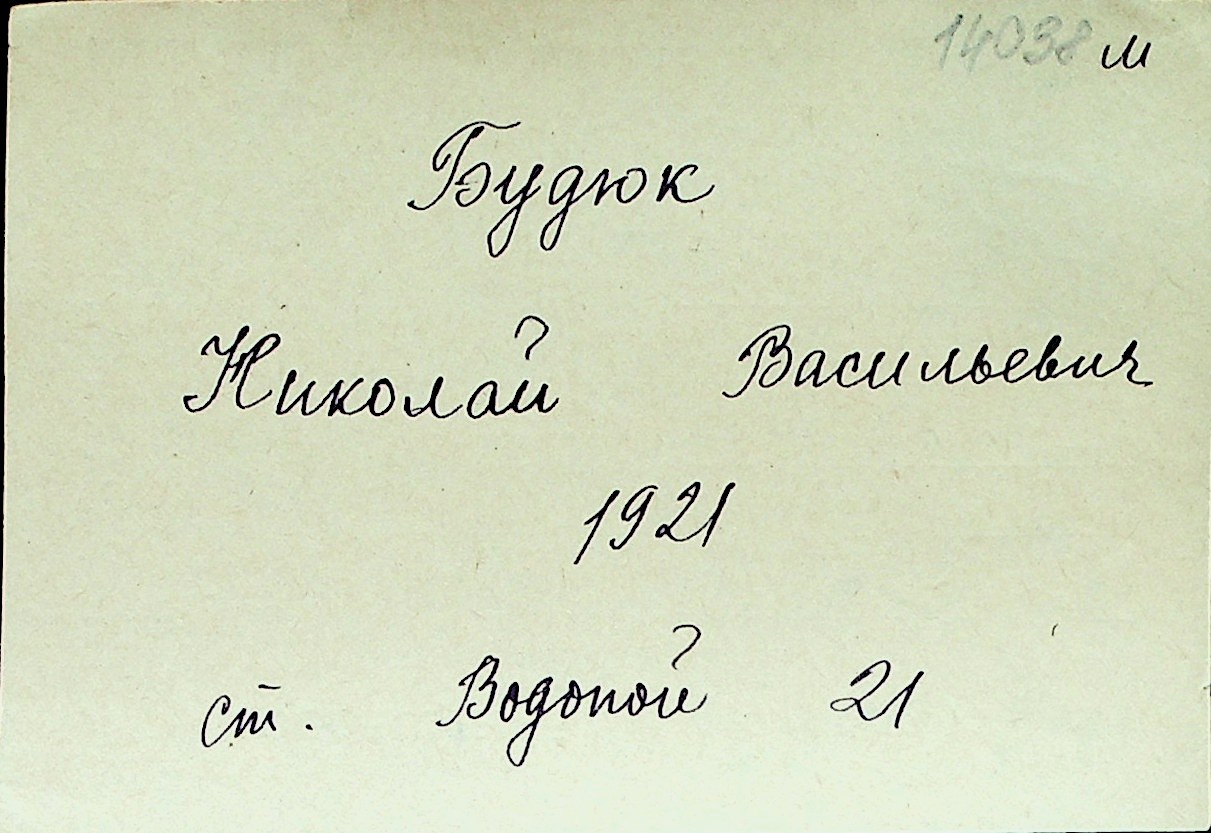 14038 м
Будюк
Николай Васильевич
1921
ст. Водопой 21